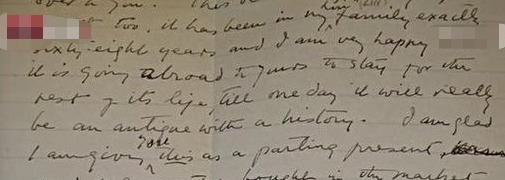 over to you. This
it too, it has been in my family exactly
sixty-eight years and I am very happy
it is going abroad to yours to stay for the
rest of its life, till one day it will really
be an antique with a history. I am glad
I am giving you this as a parting present,
bought in the market